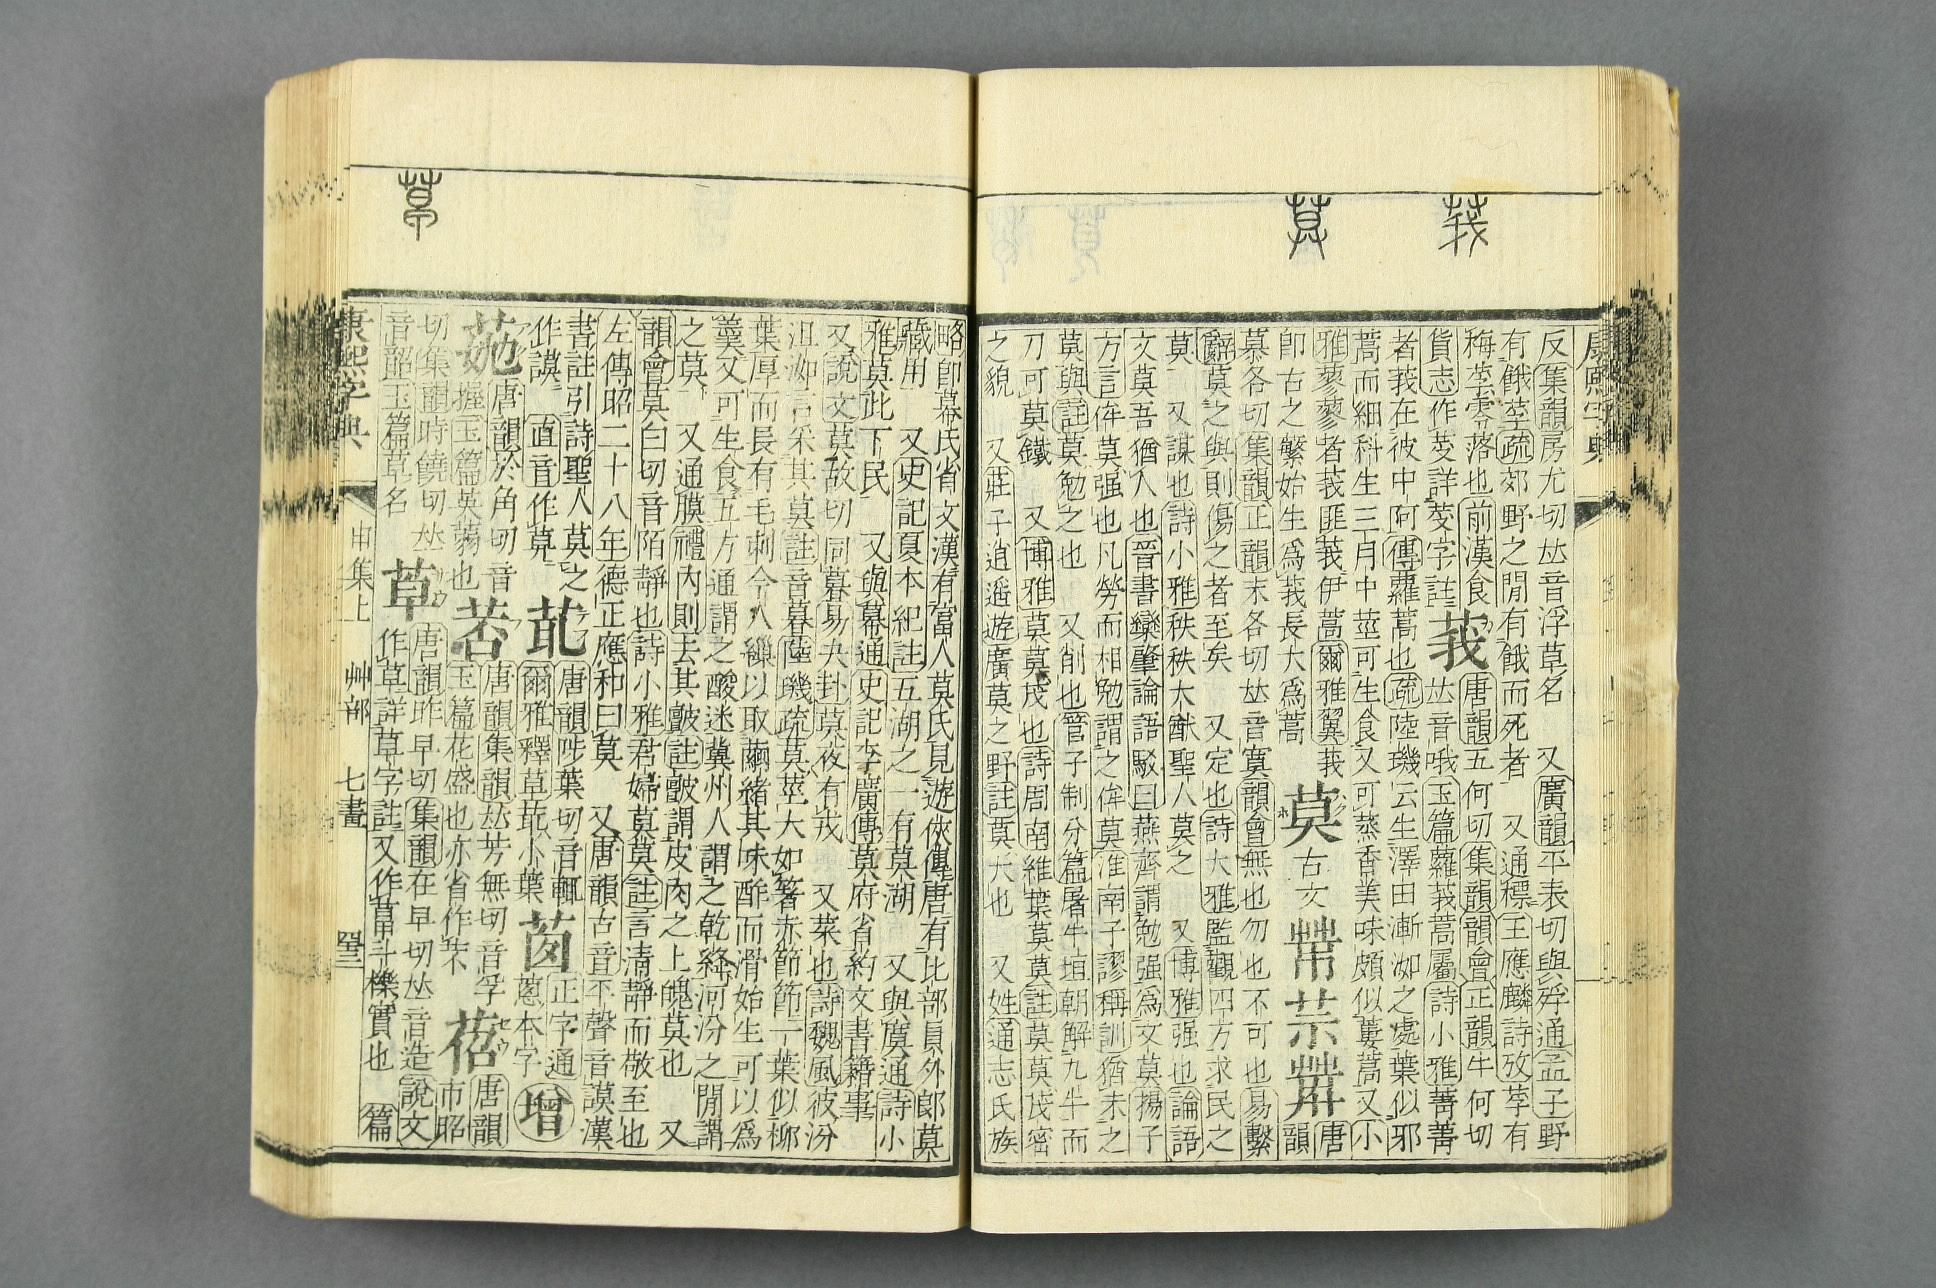 莪
莫
反集韻房尤切𠀤音浮草名　又廣韻平表切與殍通孟子野
有餓莩疏郊野之閒有餓而死者　又通標王應麟詩攷莩有
梅莩零落也前漢食
貨志作芆詳芆字註
莪
唐韻五何切集韻韻會正韻牛何切
𠀤音哦玉篇蘿莪蒿屬詩小雅菁菁
者莪在彼中阿傳蘿蒿也疏陸璣云生澤田漸洳之處葉似邪
蒿而細科生三月中莖可生食又可蒸香美味頗似蔞蒿又小
雅蓼蓼者莪匪莪伊蒿爾雅翼莪
卽古之蘩始生爲莪長大爲蒿
莫
古文𦱤
唐
韻
慕各切集韻正韻末各切𠀤音寞韻會無也勿也不可也易繫
辭莫之與則傷之者至矣　又定也詩大雅監觀四方求民之
莫　又謀也詩小雅秩秩大猷聖人莫之　又博雅强也論語
文莫吾猶人也晉書欒肇論語駁曰燕齊謂勉强爲文莫揚子
方言侔莫强也凡勞而相勉謂之侔莫淮南子謬稱訓猶未之
莫與註莫勉之也　又削也管子制分篇屠牛垣朝解九牛而
刀可莫鐵　又博雅莫莫茂也詩周南維葉莫莫註莫莫茂密
之貌　又莊子逍遙遊廣莫之野註莫大也　又姓通志氏族
略卽幕氏省文漢有富人莫氏見遊俠傳唐有比部員外郎莫
藏用　又史記夏本紀註五湖之一有莫湖　又與瘼通詩小
雅莫此下民　又與幕通史記李廣傳莫府省約文書籍事
又說文莫故切同暮易夬卦莫夜有戎　又菜也詩魏風彼汾
沮洳言采其莫註音暮陸璣疏莫莖大如箸赤節節一葉似柳
葉厚而長有毛刺今人繅以取繭緒其味酢而滑始生可以爲
羹又可生食五方通謂之酸迷冀州人謂之乾絳河汾之閒謂
之莫　又通膜禮內則去其皽註皽謂皮肉之上魄莫也　又
韻會莫白切音陌靜也詩小雅君婦莫莫註言淸靜而敬至也
左傳昭二十八年德正應和曰莫　又唐韻古音平聲音謨漢
書註引詩聖人莫之
作謨　直音作莫
䒲
唐韻陟葉切音輒
爾雅釋草䒲小葉
茵
正字通
蔥本字
增
茒
唐韻於角切音
握玉篇英蒻也
䓏
唐韻集韻𠀤芳無切音孚
玉篇花盛也亦省作芣
萔
唐韻
市昭
切集韻時饒切𠀤
音韶玉篇草名
草
唐韻昨早切集韻在早切𠀤音造說文
作草詳草字註又作䔃斗櫟實也
篇
康熙字典
申集上　艸部　七畫
康熙字典